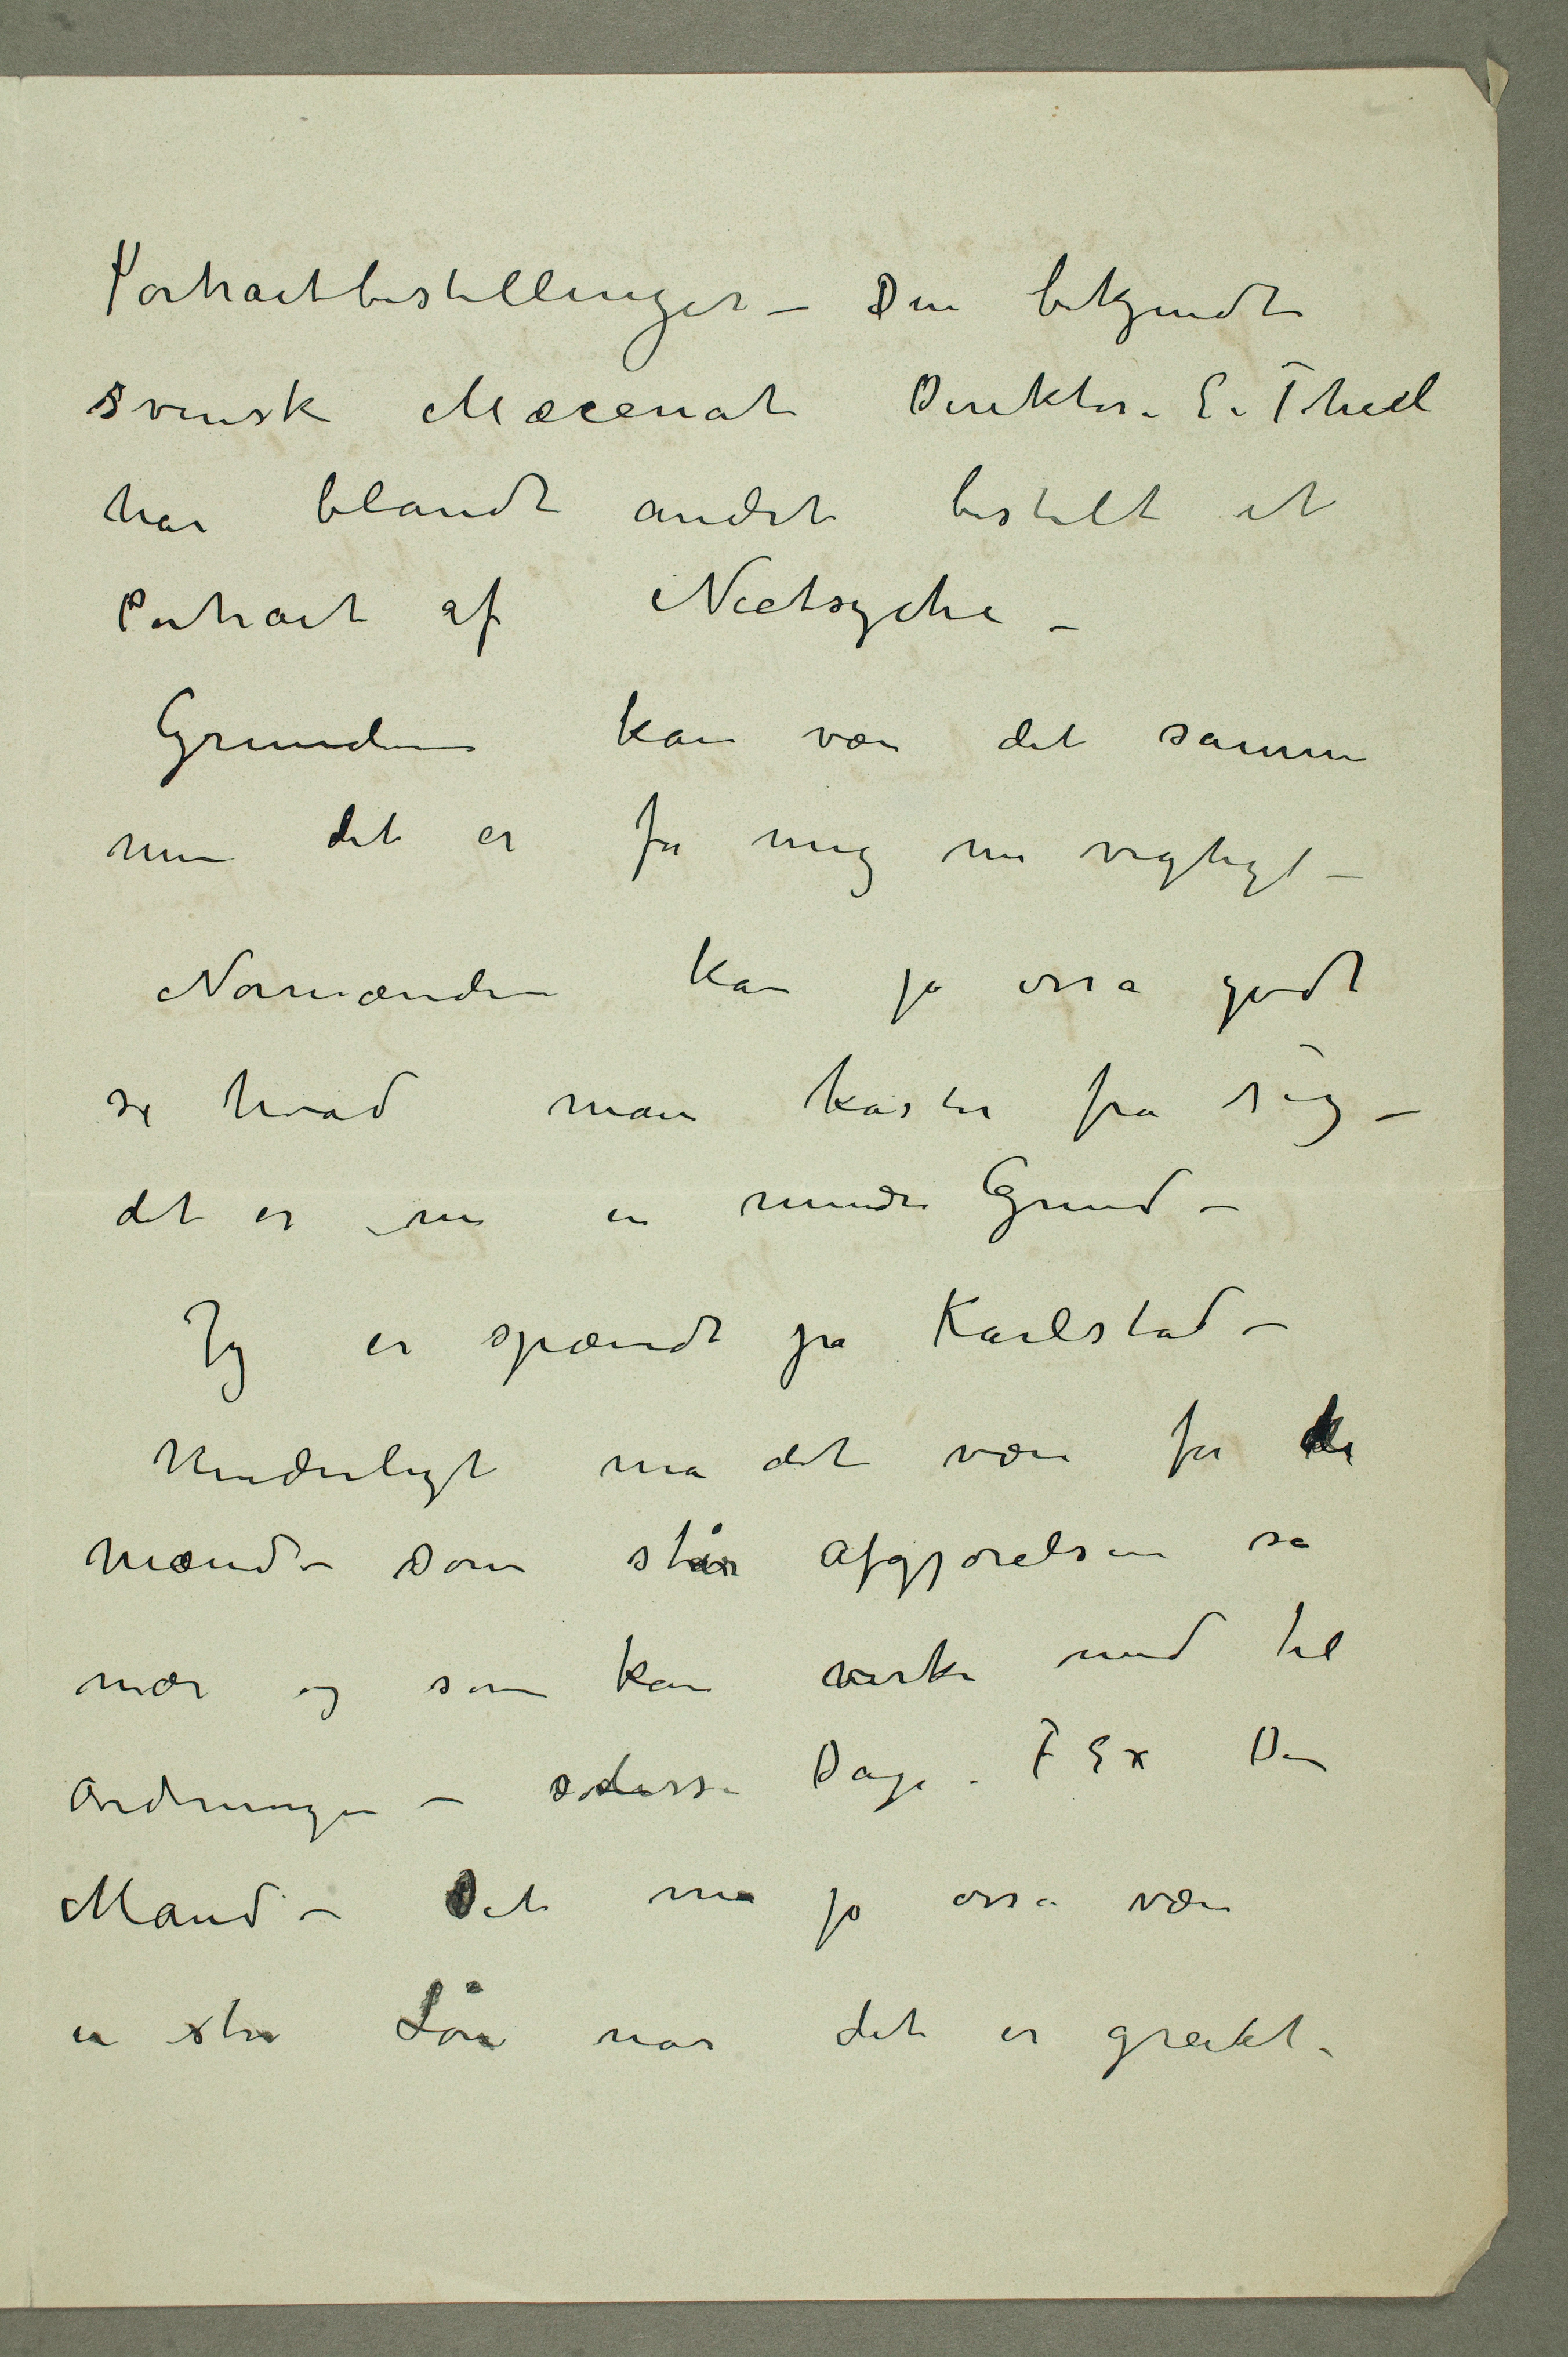 Portraitbestillinger – Den bekjendte
svenske Mæcenat Direktor E. Thiel
har blandt andet bestilt et
Portrait af Nietsyche –
Grunden kan være det samme
men det er for mig nu vigtigt –
Normænden kan jo osså godt
se hvad man kaster fra sig –
det er nu en mindre Grund –
Jeg er spændt på Karlstad –
Underligt må det være for de
mænd – som står afgjørelsen så
nær og som kan virke med til
Ordningen – disse Dage. F Ex Den
Mand – Det må jo osså være
en xtra Løn når det er greiet.